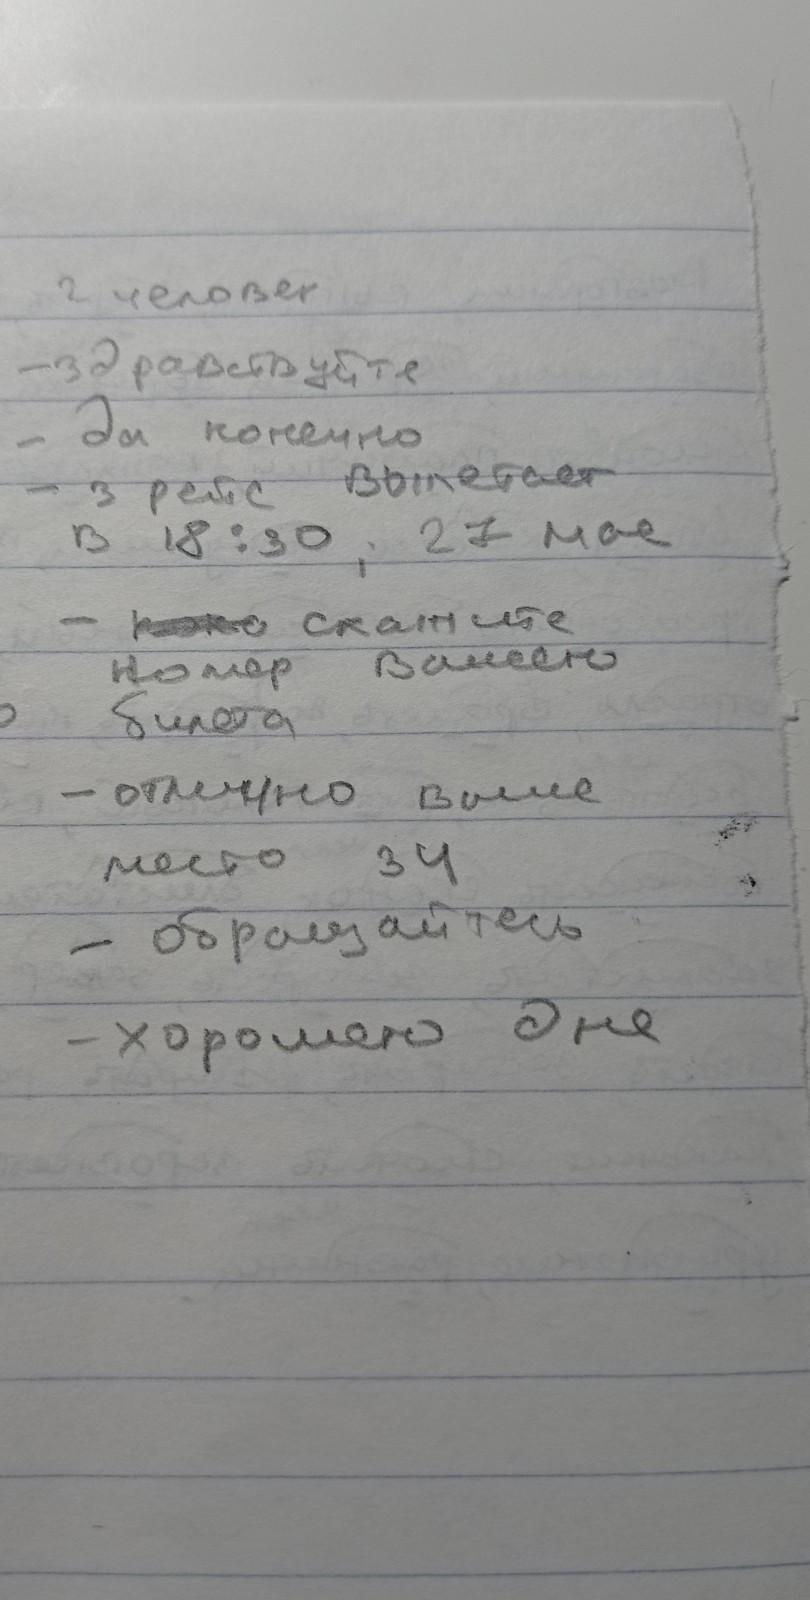 2 человек
- здравствуйте
- да конечно
- 3 рейс вылетает
в 18:30, 27 мае
- скажите
номер вашего
о билета
- отлично ваше
место 34
- обращайтесь
- хорошего дне